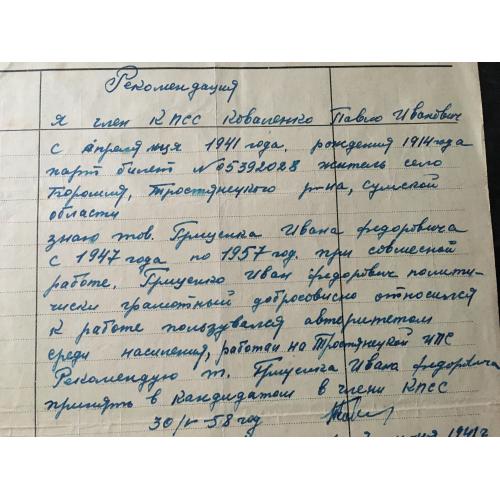 Рекомендация
Я член КПСС Коваленко Павло Иванович
с апреля м-ця 1941 года, рождения 1914 года
парт билет № 05392028 житель село
Боромля, Тростянецкого р-на, Сумской
области
знаю тов. Грищенка Ивана Федоровича
с 1947 года по 1957 год. при совмесной
работе. Грищенко Иван Федорович полити-
чиски грамотный добросовисно относился
к работе пользувался авторитетом
среди насиления, работая на Тростянецкой
Рекомендую т. Грищенка Ивана Федоровича
принять в кандидатом в члени КПСС
30/ - 58 год
1941 г